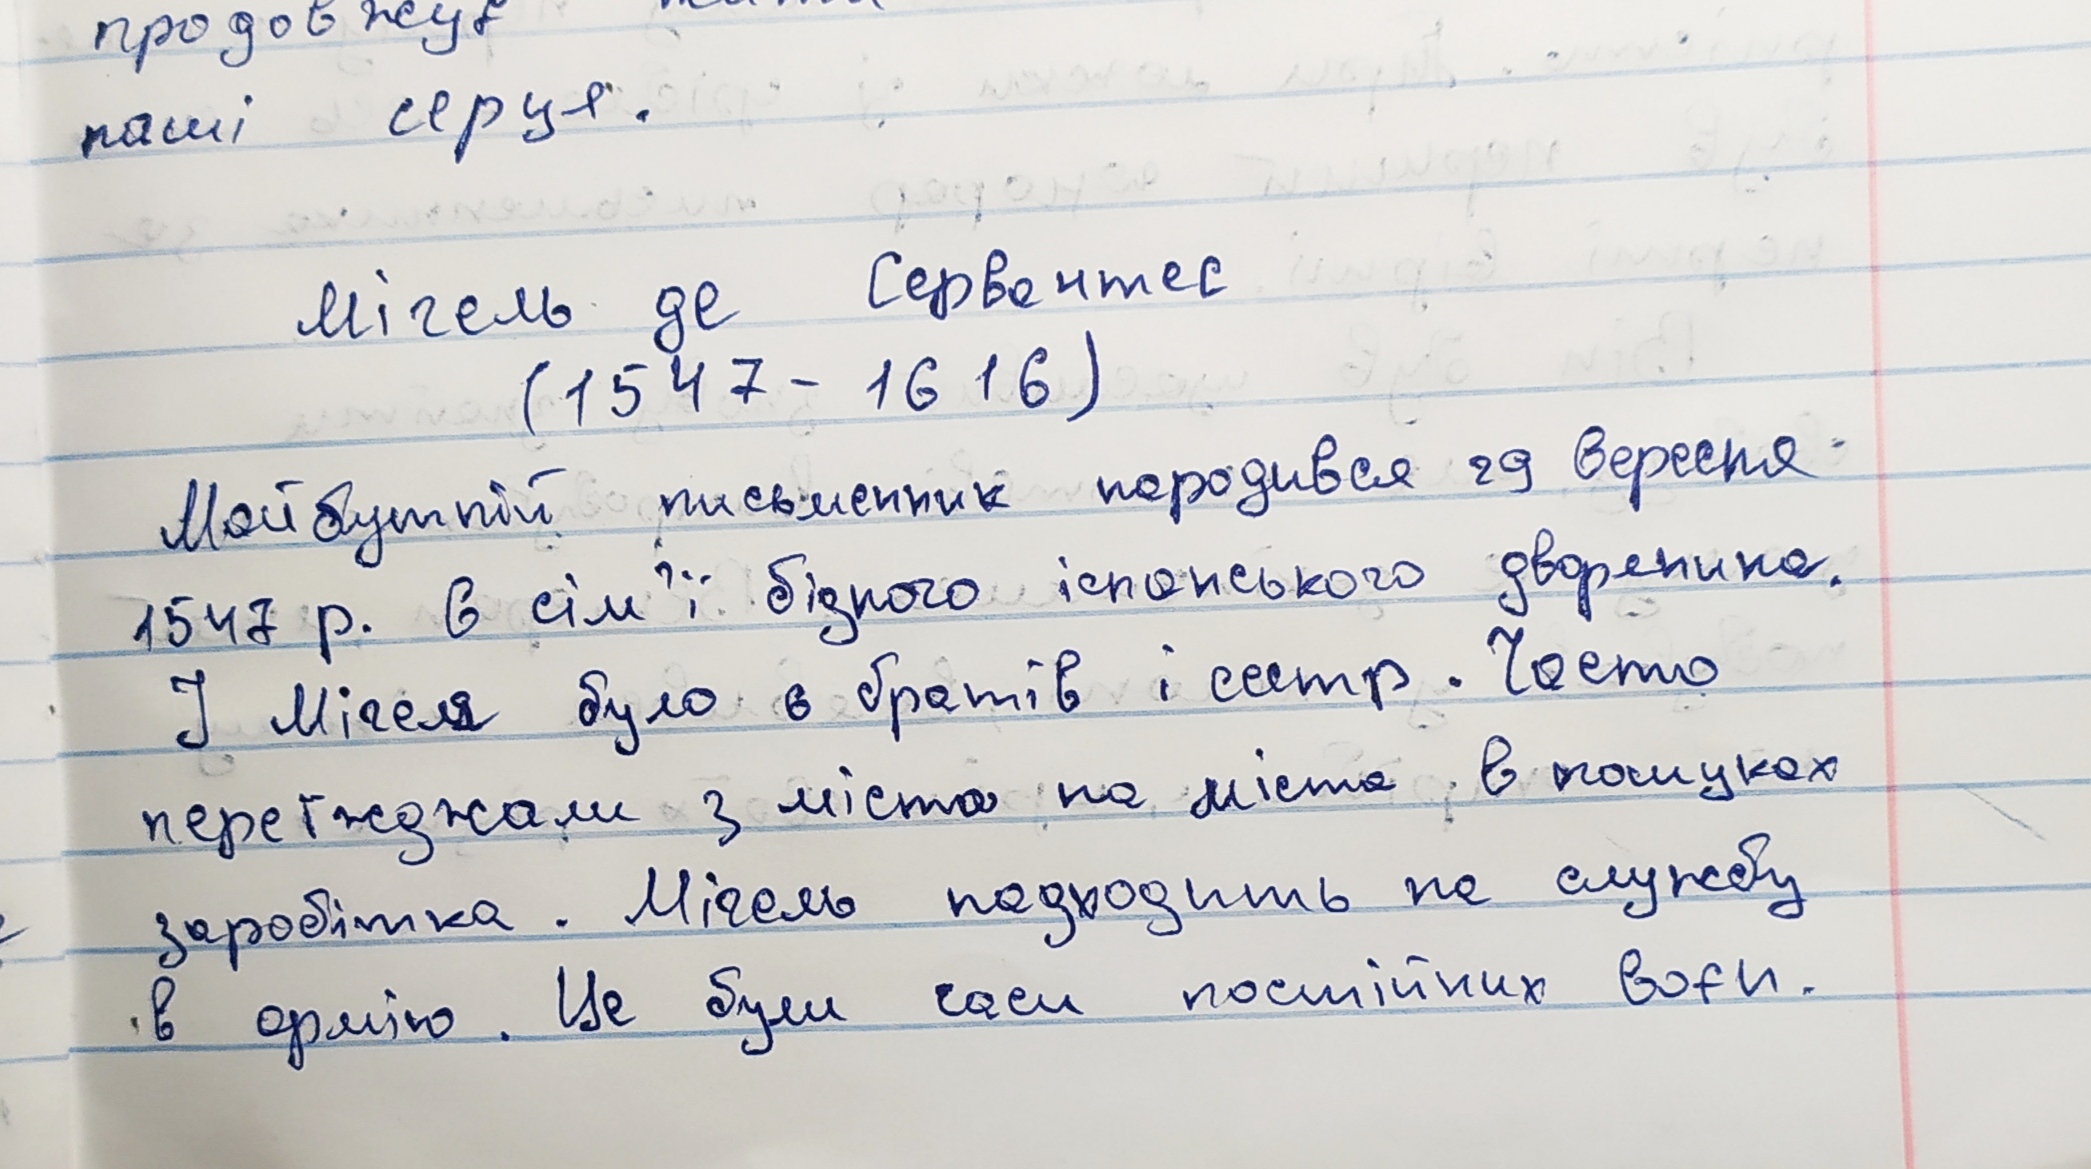 продовжує
наші серця.
Мігель де Сервантес
(1547-1616)
Майбутній письменник народився 29 вересня
1547 р. в сім'ї бідного іспанського дворянина.
І Мігеля було 6 братів і сестр. Часто
переїжджали з міста на міста в пошуках
заробітка. Мігель надходить на службу
в армію. Це були часи постійних воєн.